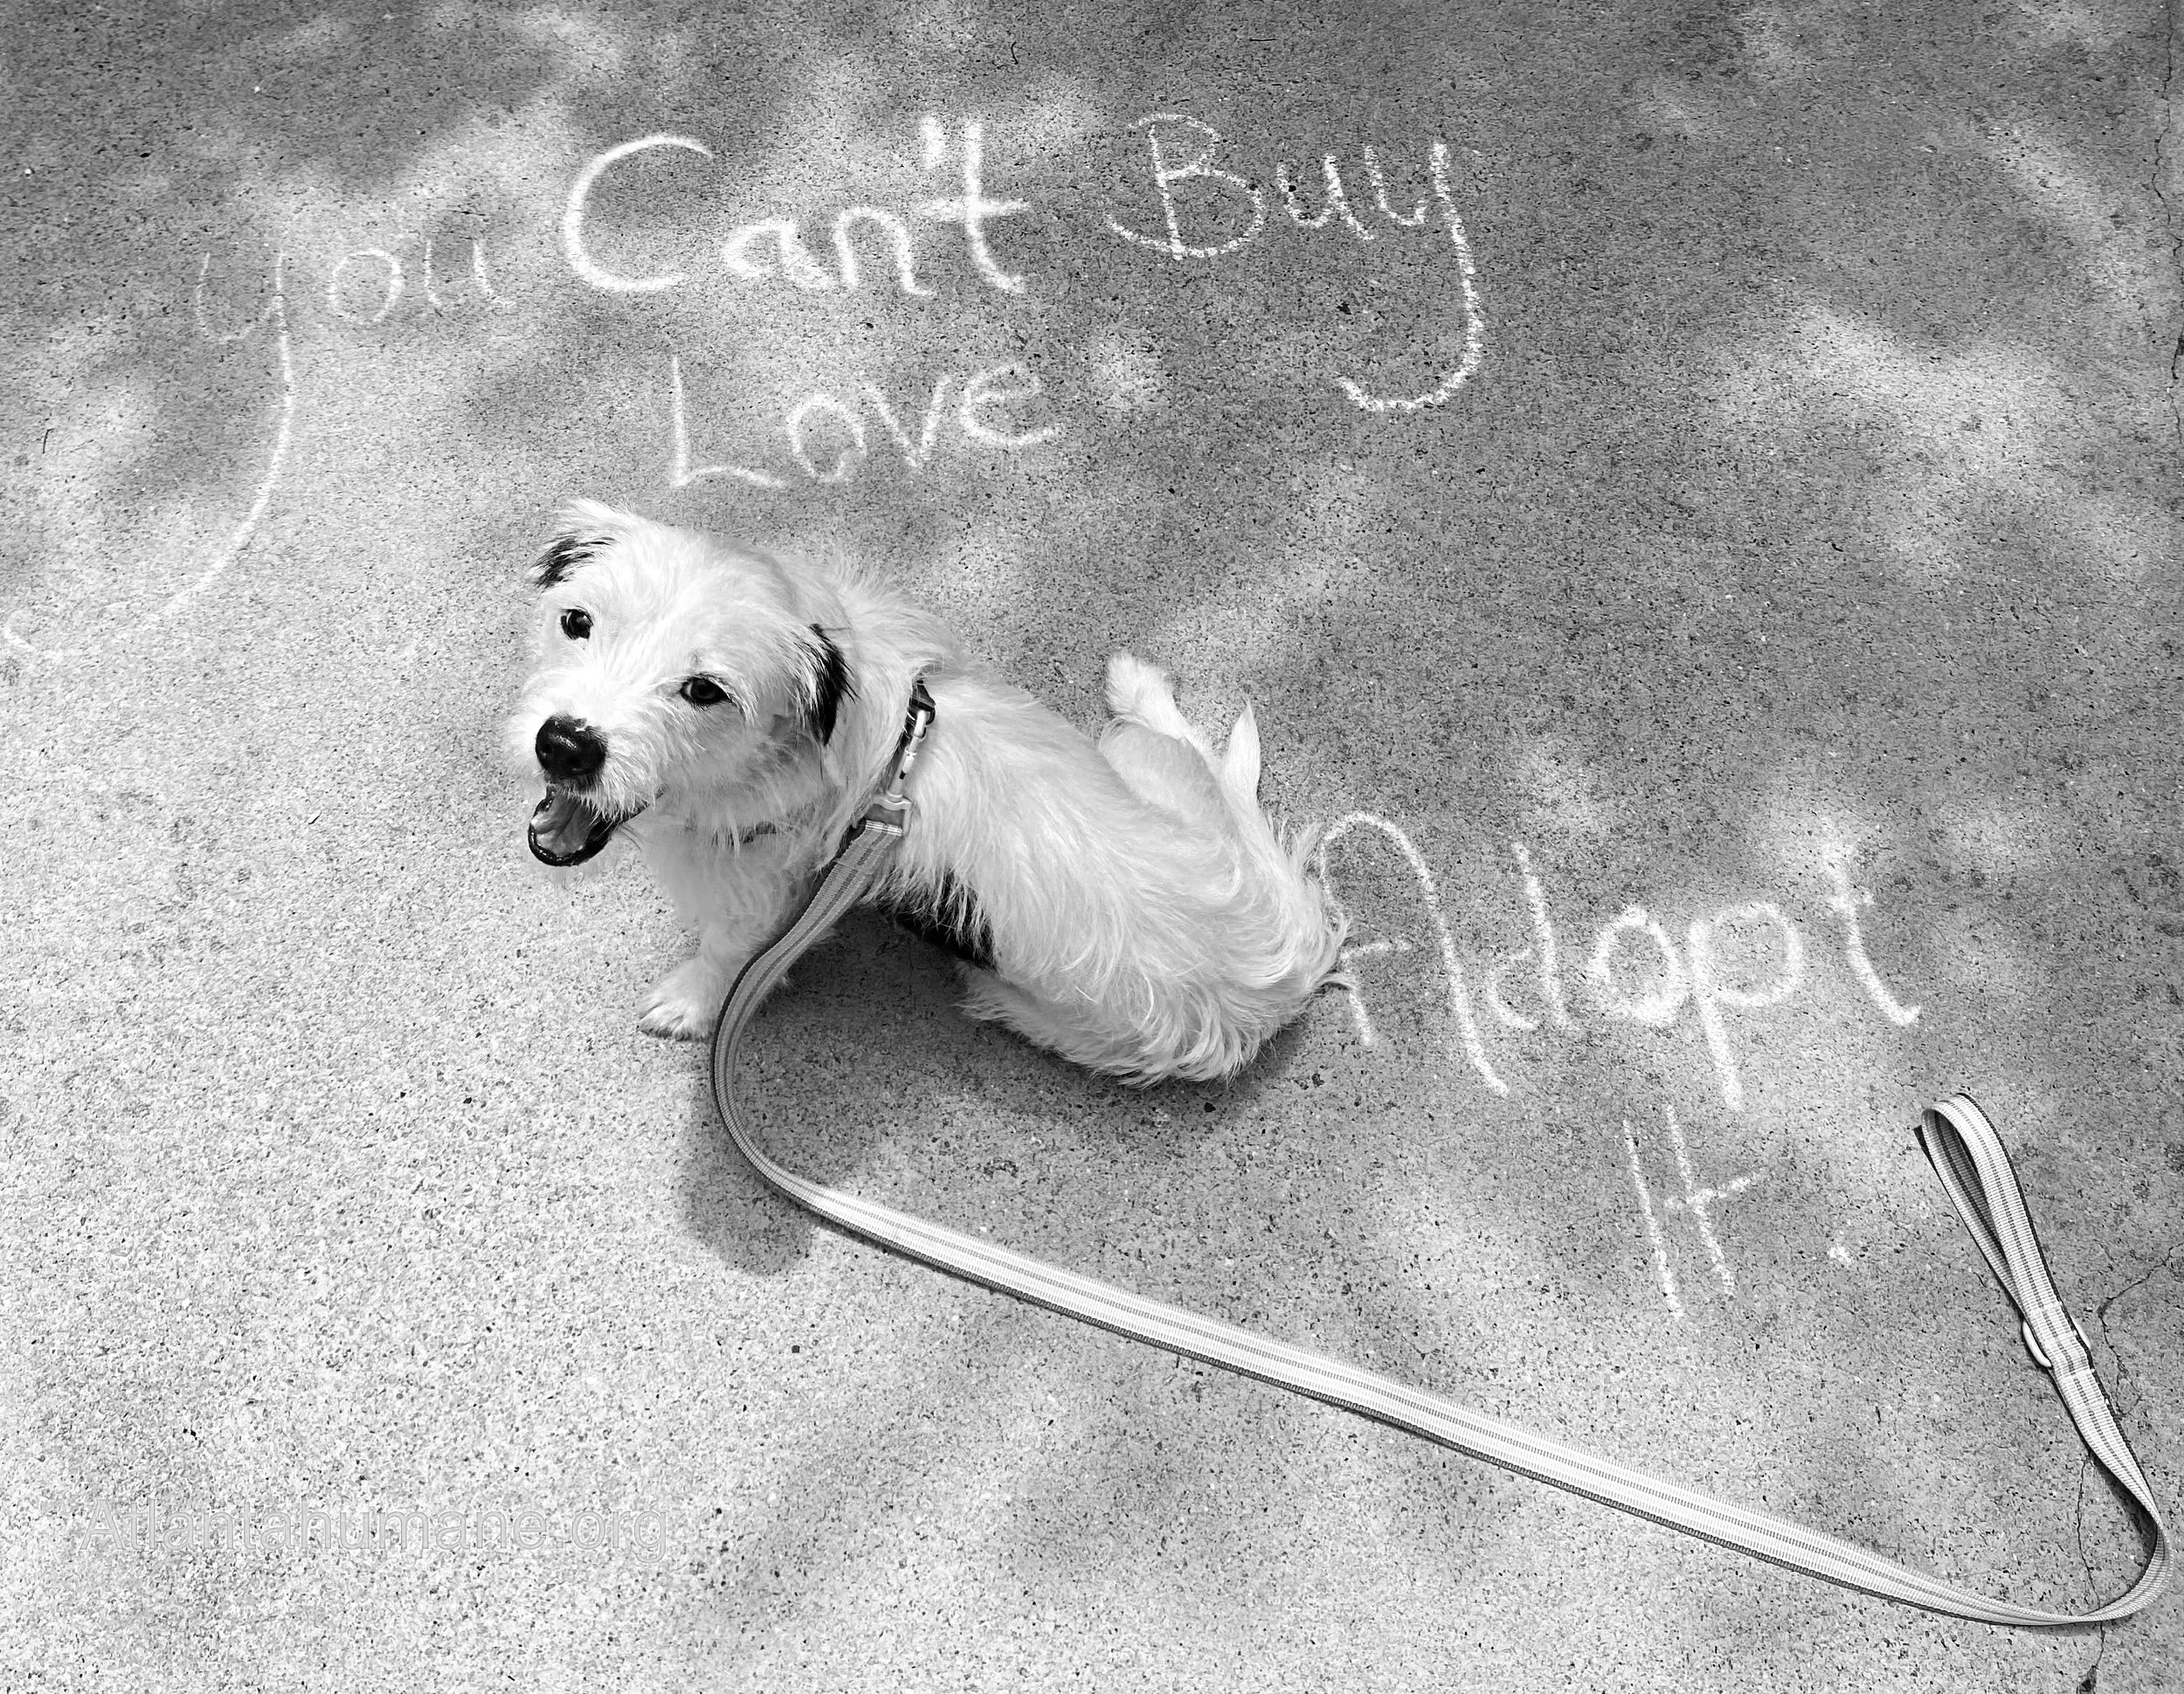 You Can't Buy
Love
Adopt
It.
Atlantahumane.org